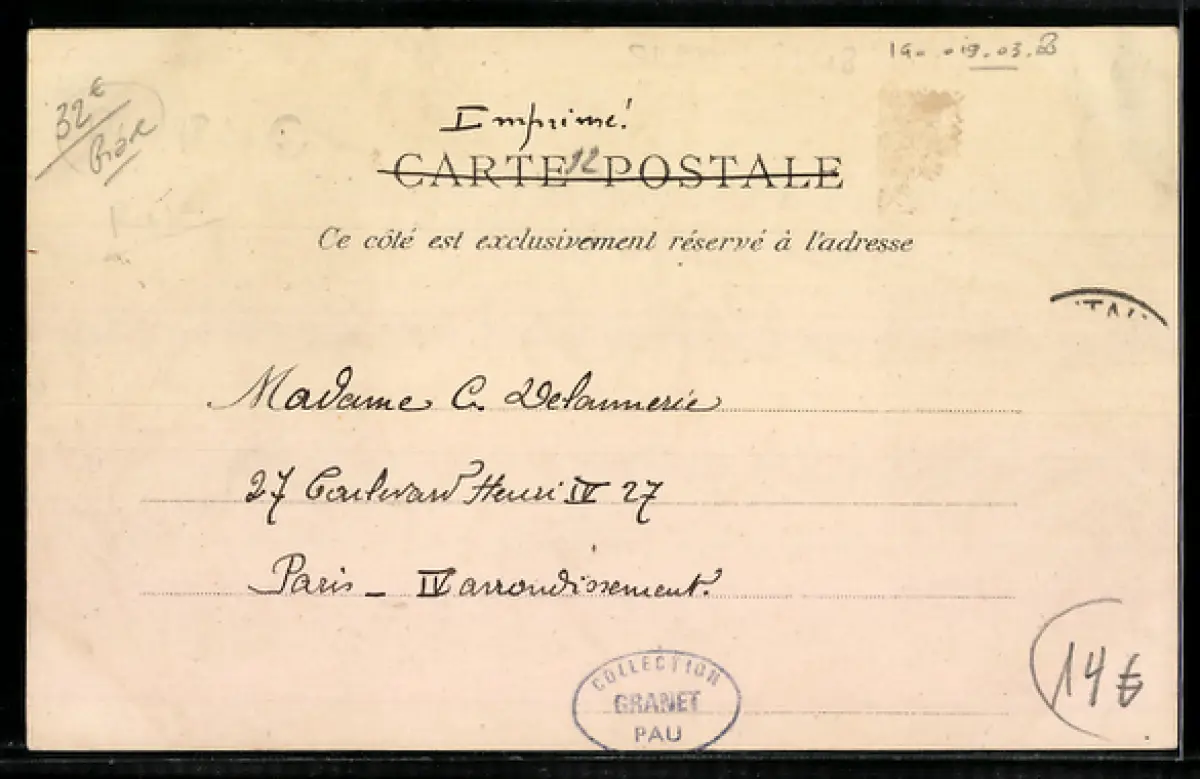 19.03.
32€
Imprimé!
CARTE POSTALE
12
Ce côté est exclusivement réservé à l'adresse
Madame C. Delannerie
27 Boulevard Henri IV 27
Paris _ IV arrondissement.
COLLECTION
GRANET
PAU
14€